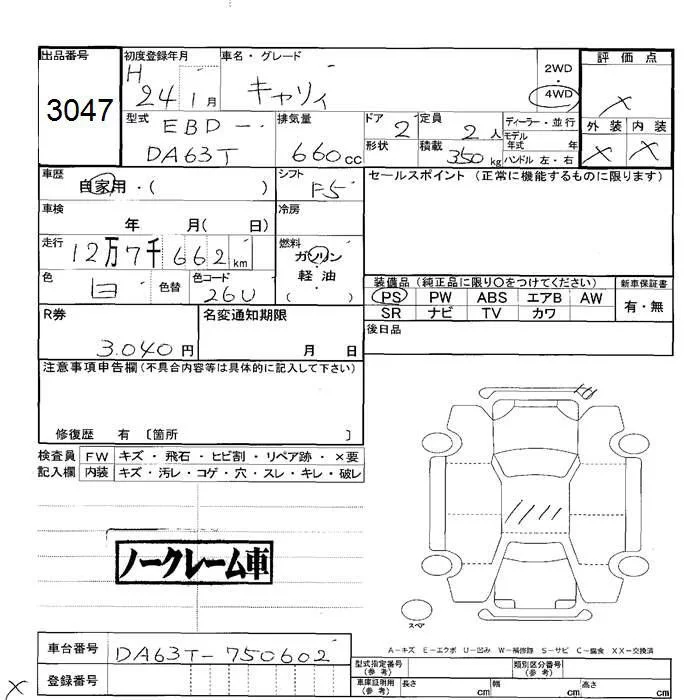 出品番号 初度登録年月 車名・グレード 評価点
3047 H 24 1月 キャリィ 2WD・4WD X
型式 EBD- 排気量 ドア 2 定員 2人 ディーラー・並行 外装 内装
モデル年式 年
DA63T 660cc 形状 積載 350kg ハンドル 左・右 X X
車歴 自家用・( ) シフト F5 セールスポイント (正常に機能するものに限ります)
車検 年 月( 日) 冷房
走行 12万7千662km 燃料 ガソリン・軽油( )
色 白 色替 色コード 26U 装備品 (純正品に限り○をつけてください) 新車保証書
PS PW ABS エアB AW 有・無
SR ナビ TV カワ
R券 3.040円 名変通知期限 月 日 後日品
注意事項申告欄 (不具合内容等は具体的に記入して下さい)
修復歴 有 〔箇所 〕
検査員 FW キズ・飛石・ヒビ割・リペア跡・×要
記入欄 内装 キズ・汚レ・コゲ・穴・スレ・キレ・破レ
ノークレーム車
スペア
A-キズ E-エクボ U-凹み W-補修跡 S-サビ C-腐食 XX-交換済
車台番号 DA63T-750602 型式指定番号(参考) 類別区分番号(参考)
X 登録番号 車庫証明用(参考) 長さ cm 幅 cm 高さ cm